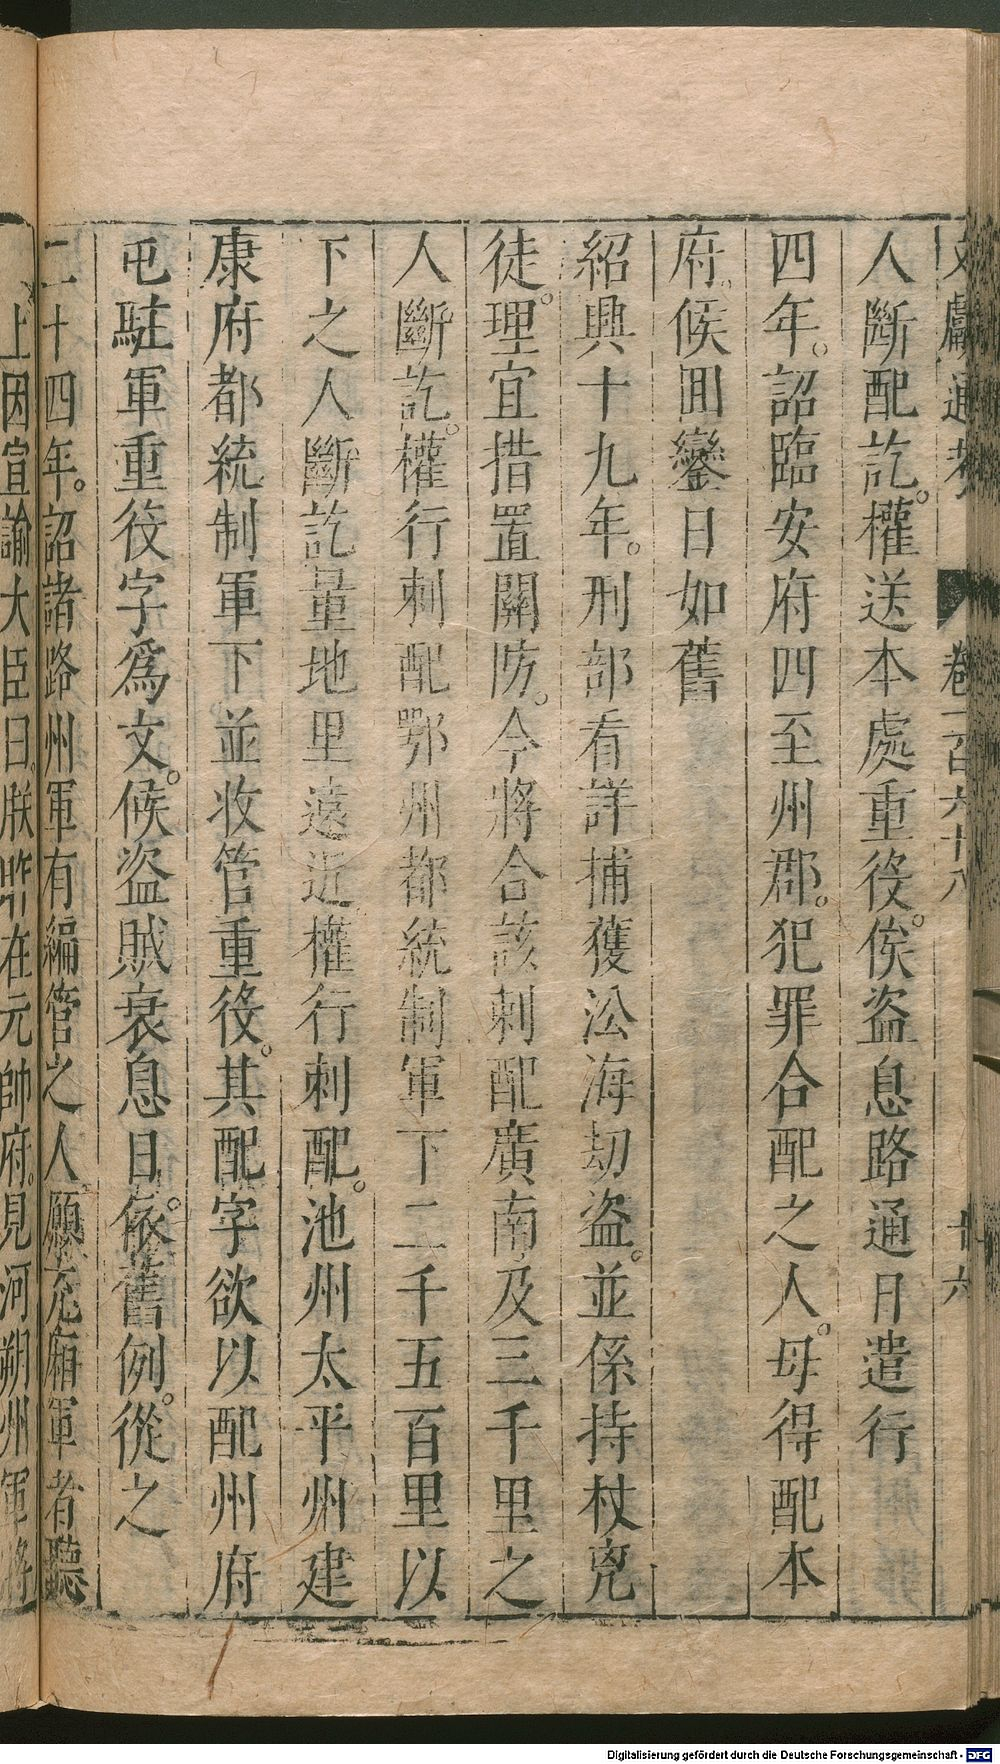 文獻通考 卷一百六十八 廿六
人斷配訖。權送本處重役。俟盜息路通日遣行
四年。詔臨安府四至州郡。犯罪合配之人。毋得配本
府。候囬鑾日如舊
紹興十九年。刑部看詳捕獲㳂海刼盜。並係持杖兇
徒。理宜措置關防。今將合該刺配廣南及三千里之
人斷訖。權行刺配鄂州都統制軍下二千五百里以
下之人斷訖量地里遠近權行刺配。池州太平州建
康府都統制軍下並收管重役。其配字欲以配州府
屯駐軍重役字爲文。候盜賊衰息日。依舊例。從之
二十四年。詔諸路州軍有編管之人願充廂軍者聽
上因宣諭大臣曰。朕昨在元帥府。見河朔州軍將
Digitalisierung gefördert durch die Deutsche Forschungsgemeinschaft - DFG